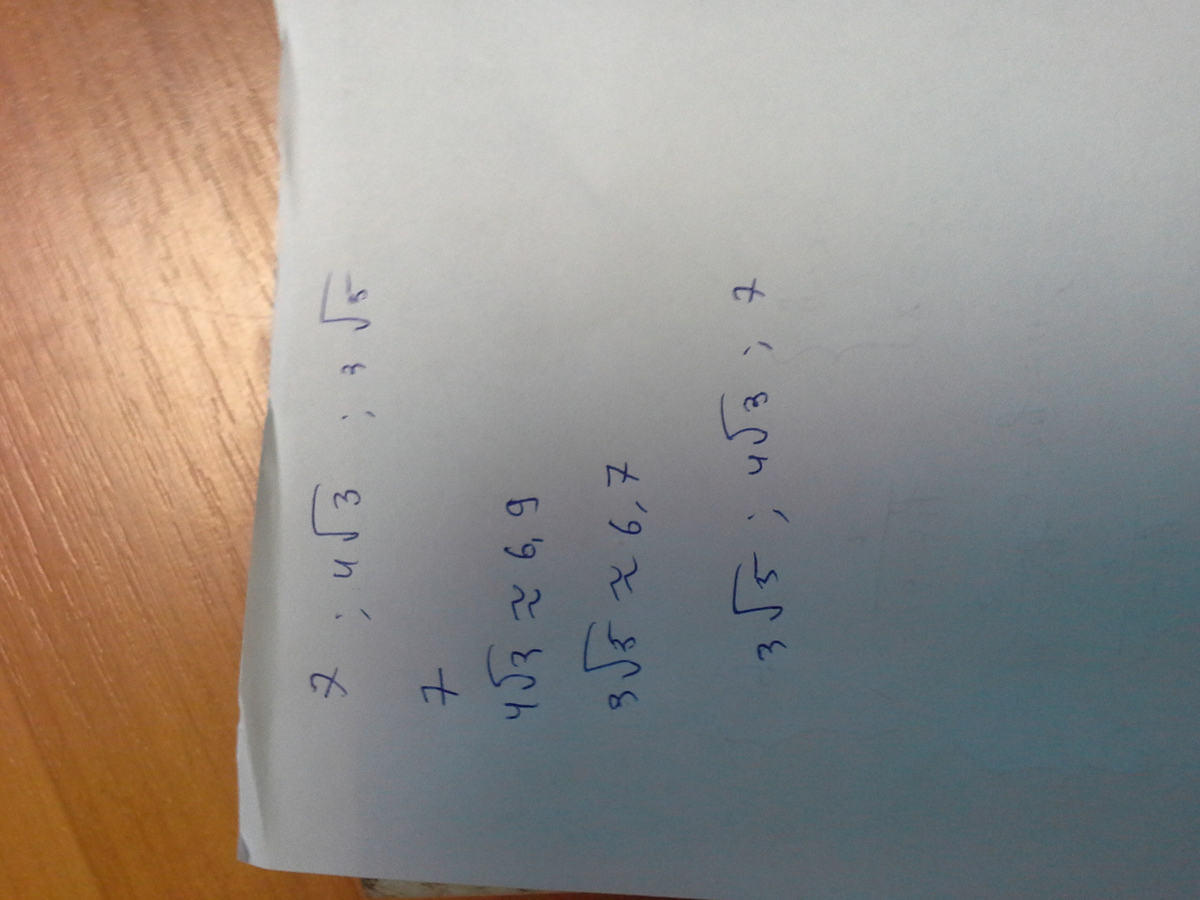 7 ; 4√3 ; 3√5
7
4√3 ≈ 6,9
3√5 ≈ 6,7
3√5 ; 4√3 ; 7